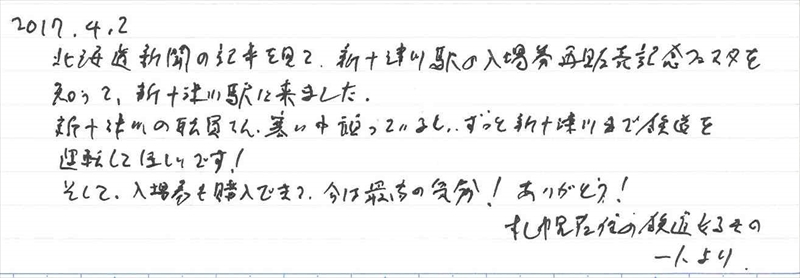 2017.4.2
北海道新聞の記事を見て、新十津川駅の入場券再販売記念フェスタを
知って、新十津川駅に来ました。
新十津川の駅員さん、寒い中頑っているし、ずっと新十津川まで鉄道を
運転してほしいです!
そして、入場券も購入できて、今は最高の気分!ありがとう!
札幌在住の鉄道好きの
一人より